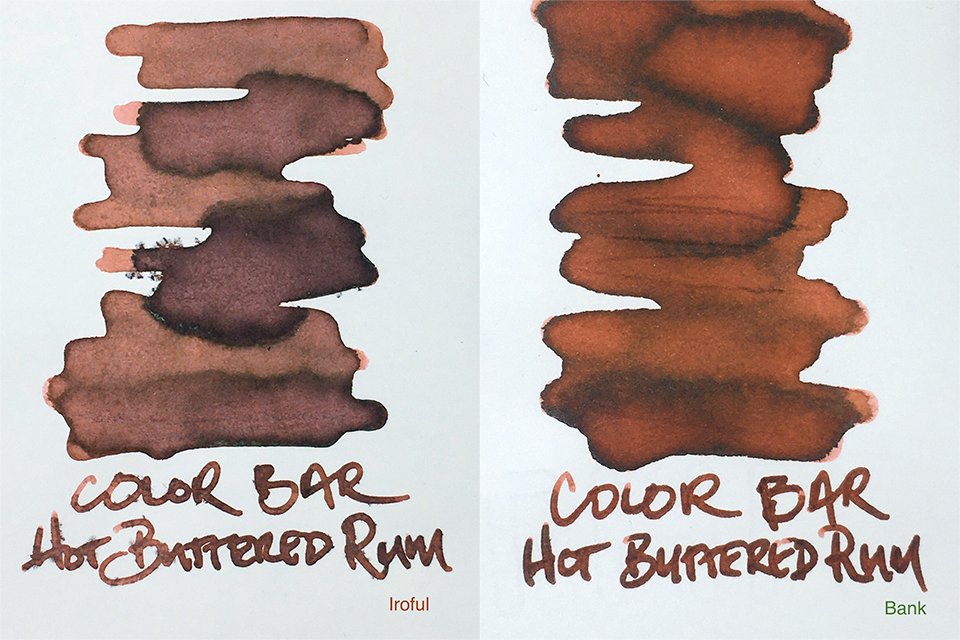 COLOR BAR
HOT BUTTERED RUM
Iroful
COLOR BAR
HOT BUTTERED RUM
Bank